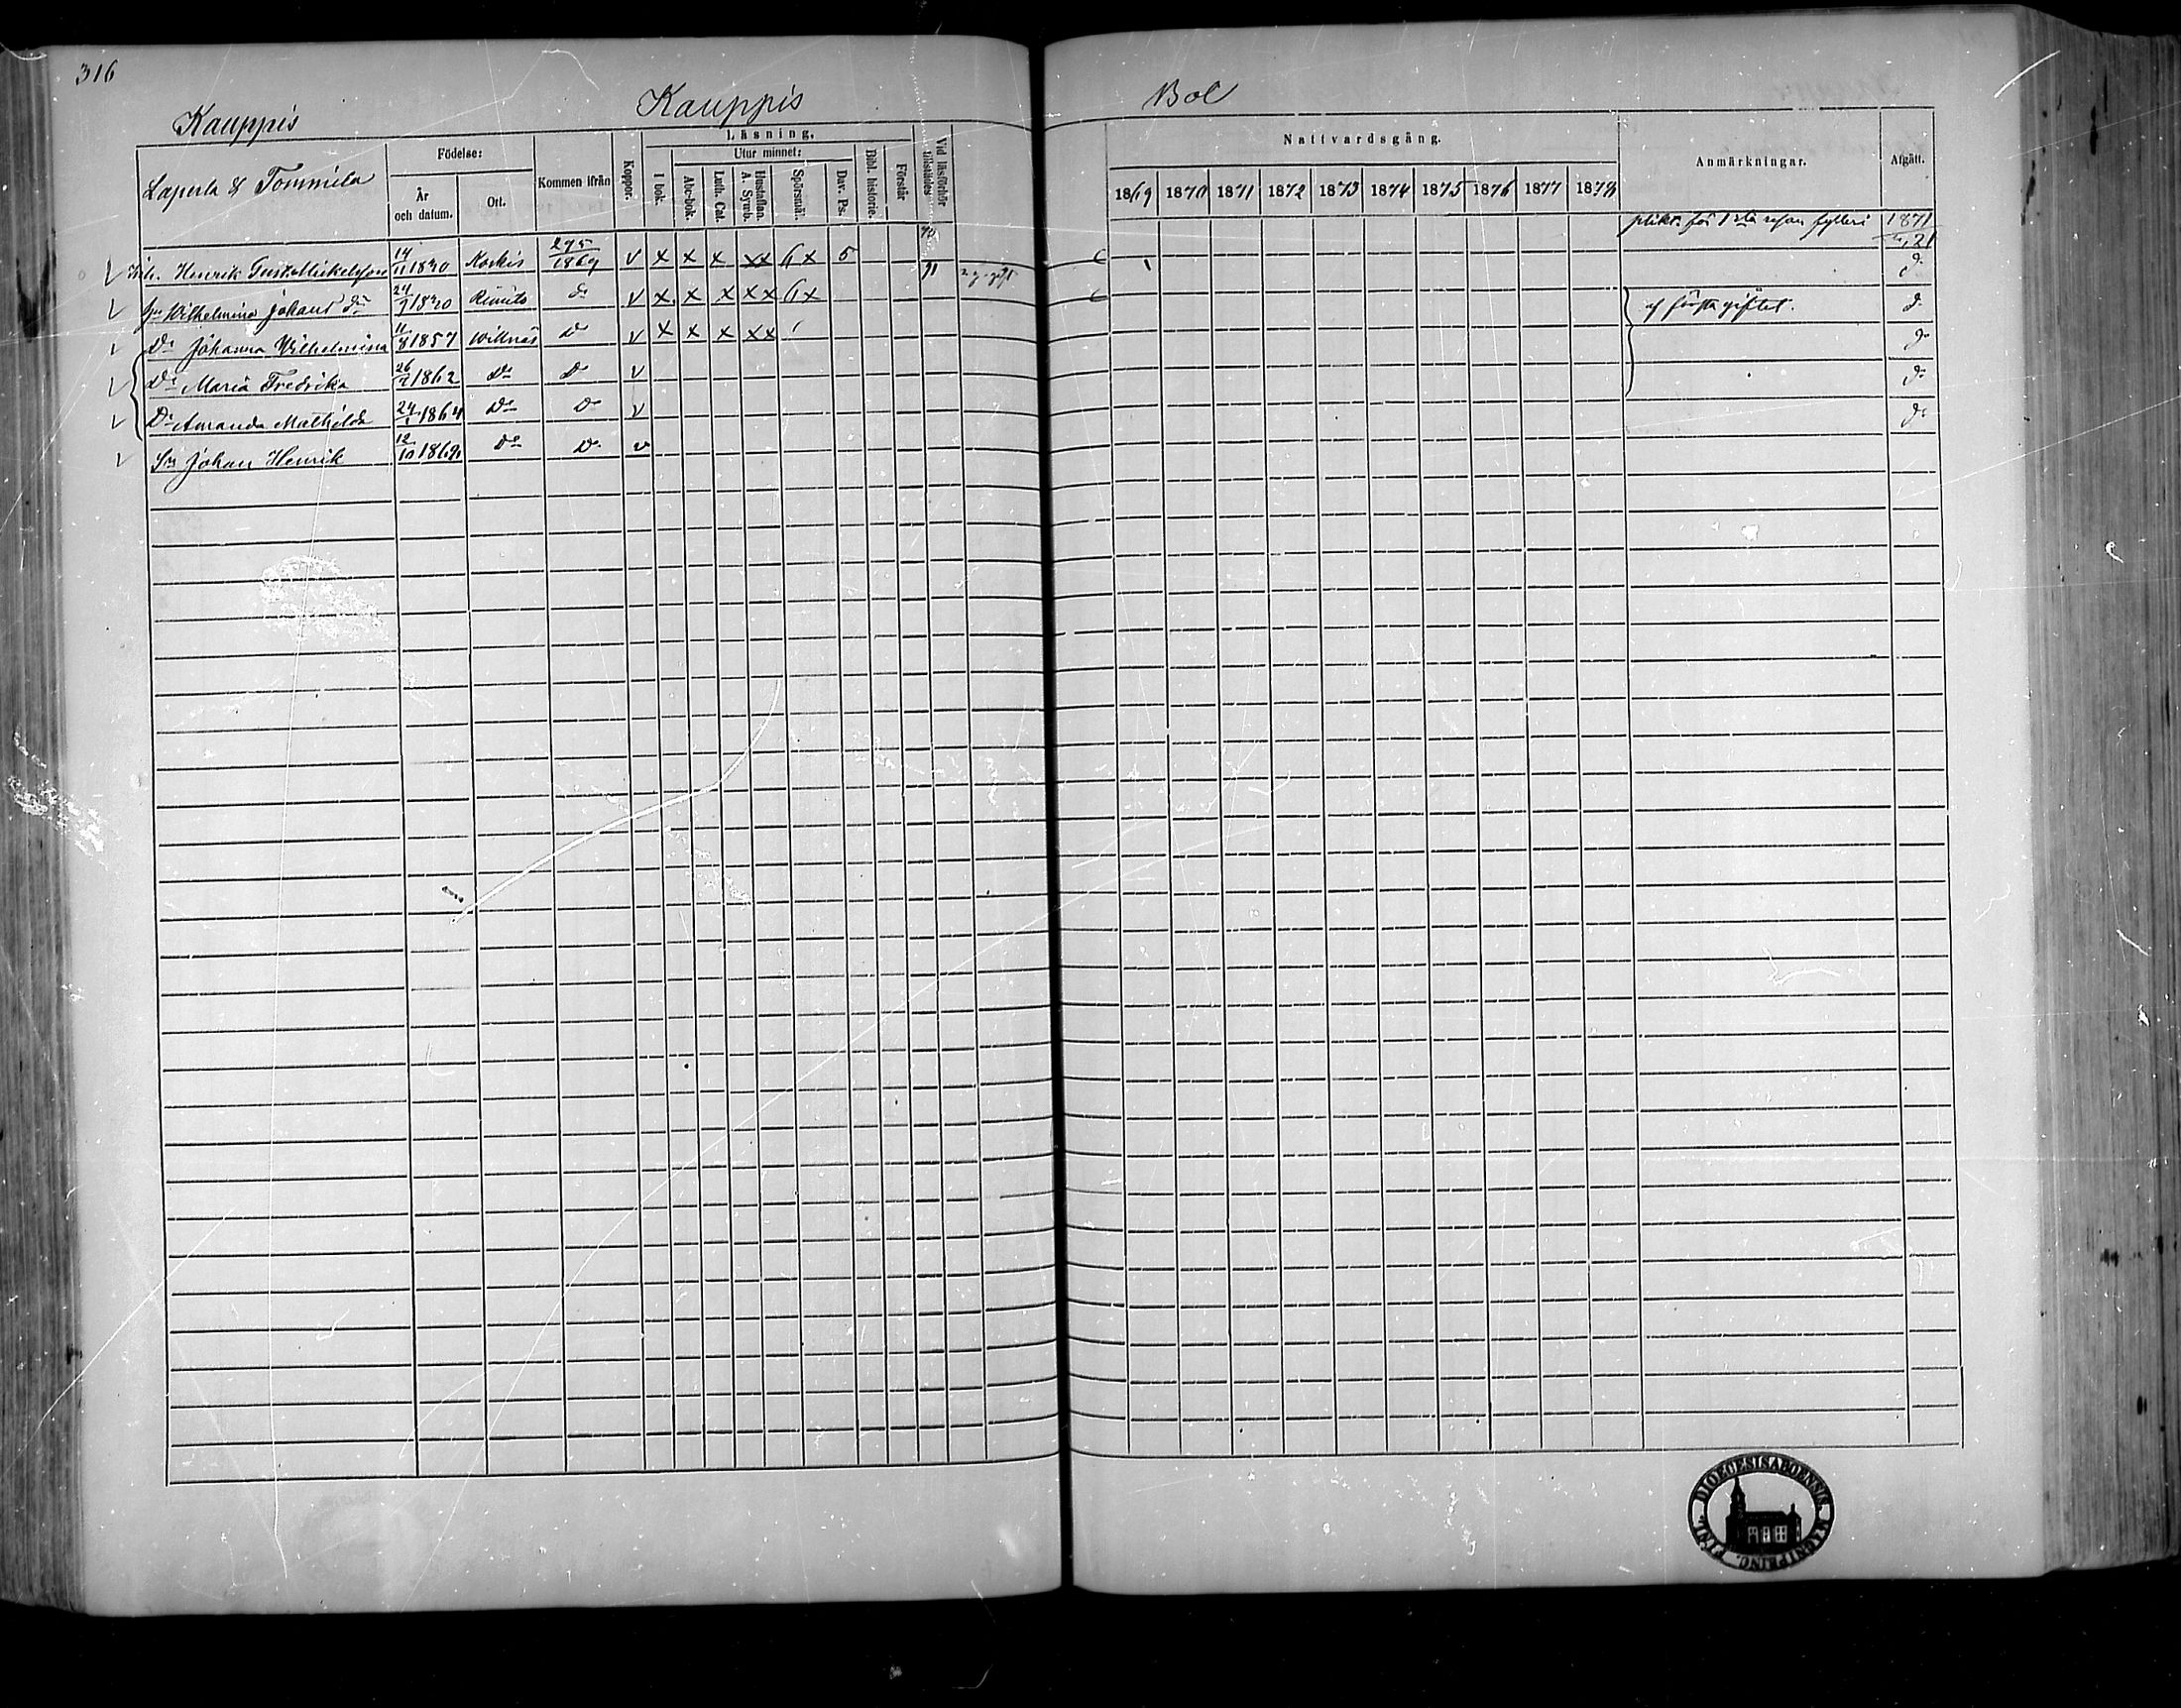 316
Kauppis Kauppis Bol
Laperla & Tommila
Födelse:
År och datum.
Ort.
Kommen ifrån
Koppor.
Läsning.
I bok.
Utur minnet:
Abc-bok.
Luth. Cat.
Hustaflan. A. Symb.
Spörsmål
Dav. Ps.
Bibl. historie.
Förstår
Vid läsförhör tillstädes
Nattvardsgång.
1869 1870 1871 1872 1873 1874 1875 1876 1877 1878
Anmärkningar.
Afgått.
Henrik Gust. Mickelsson 14/11 1830 Koskis 295/1869 v x x x xx 6 x 5 70 6 plikt. för 1sta resan fylleri 1871 / 21
Wilhelmina Johans dr 24/1 1830 Rimito do v x x x xx 6 x 71 6 do
Dr Johanna Wilhelmina 11/8 1857 Willnäs Do v x x x xx af första giftet. do
Dr Maria Fredrika 26/2 1862 Do Do v do
Dr Amanda Mathilda 24/1 1864 Do Do v do
Sn Johan Henrik 12/10 1869 Do Do v do
DIOECESIS ABOENSIS MAGNI PRINC. FINL.